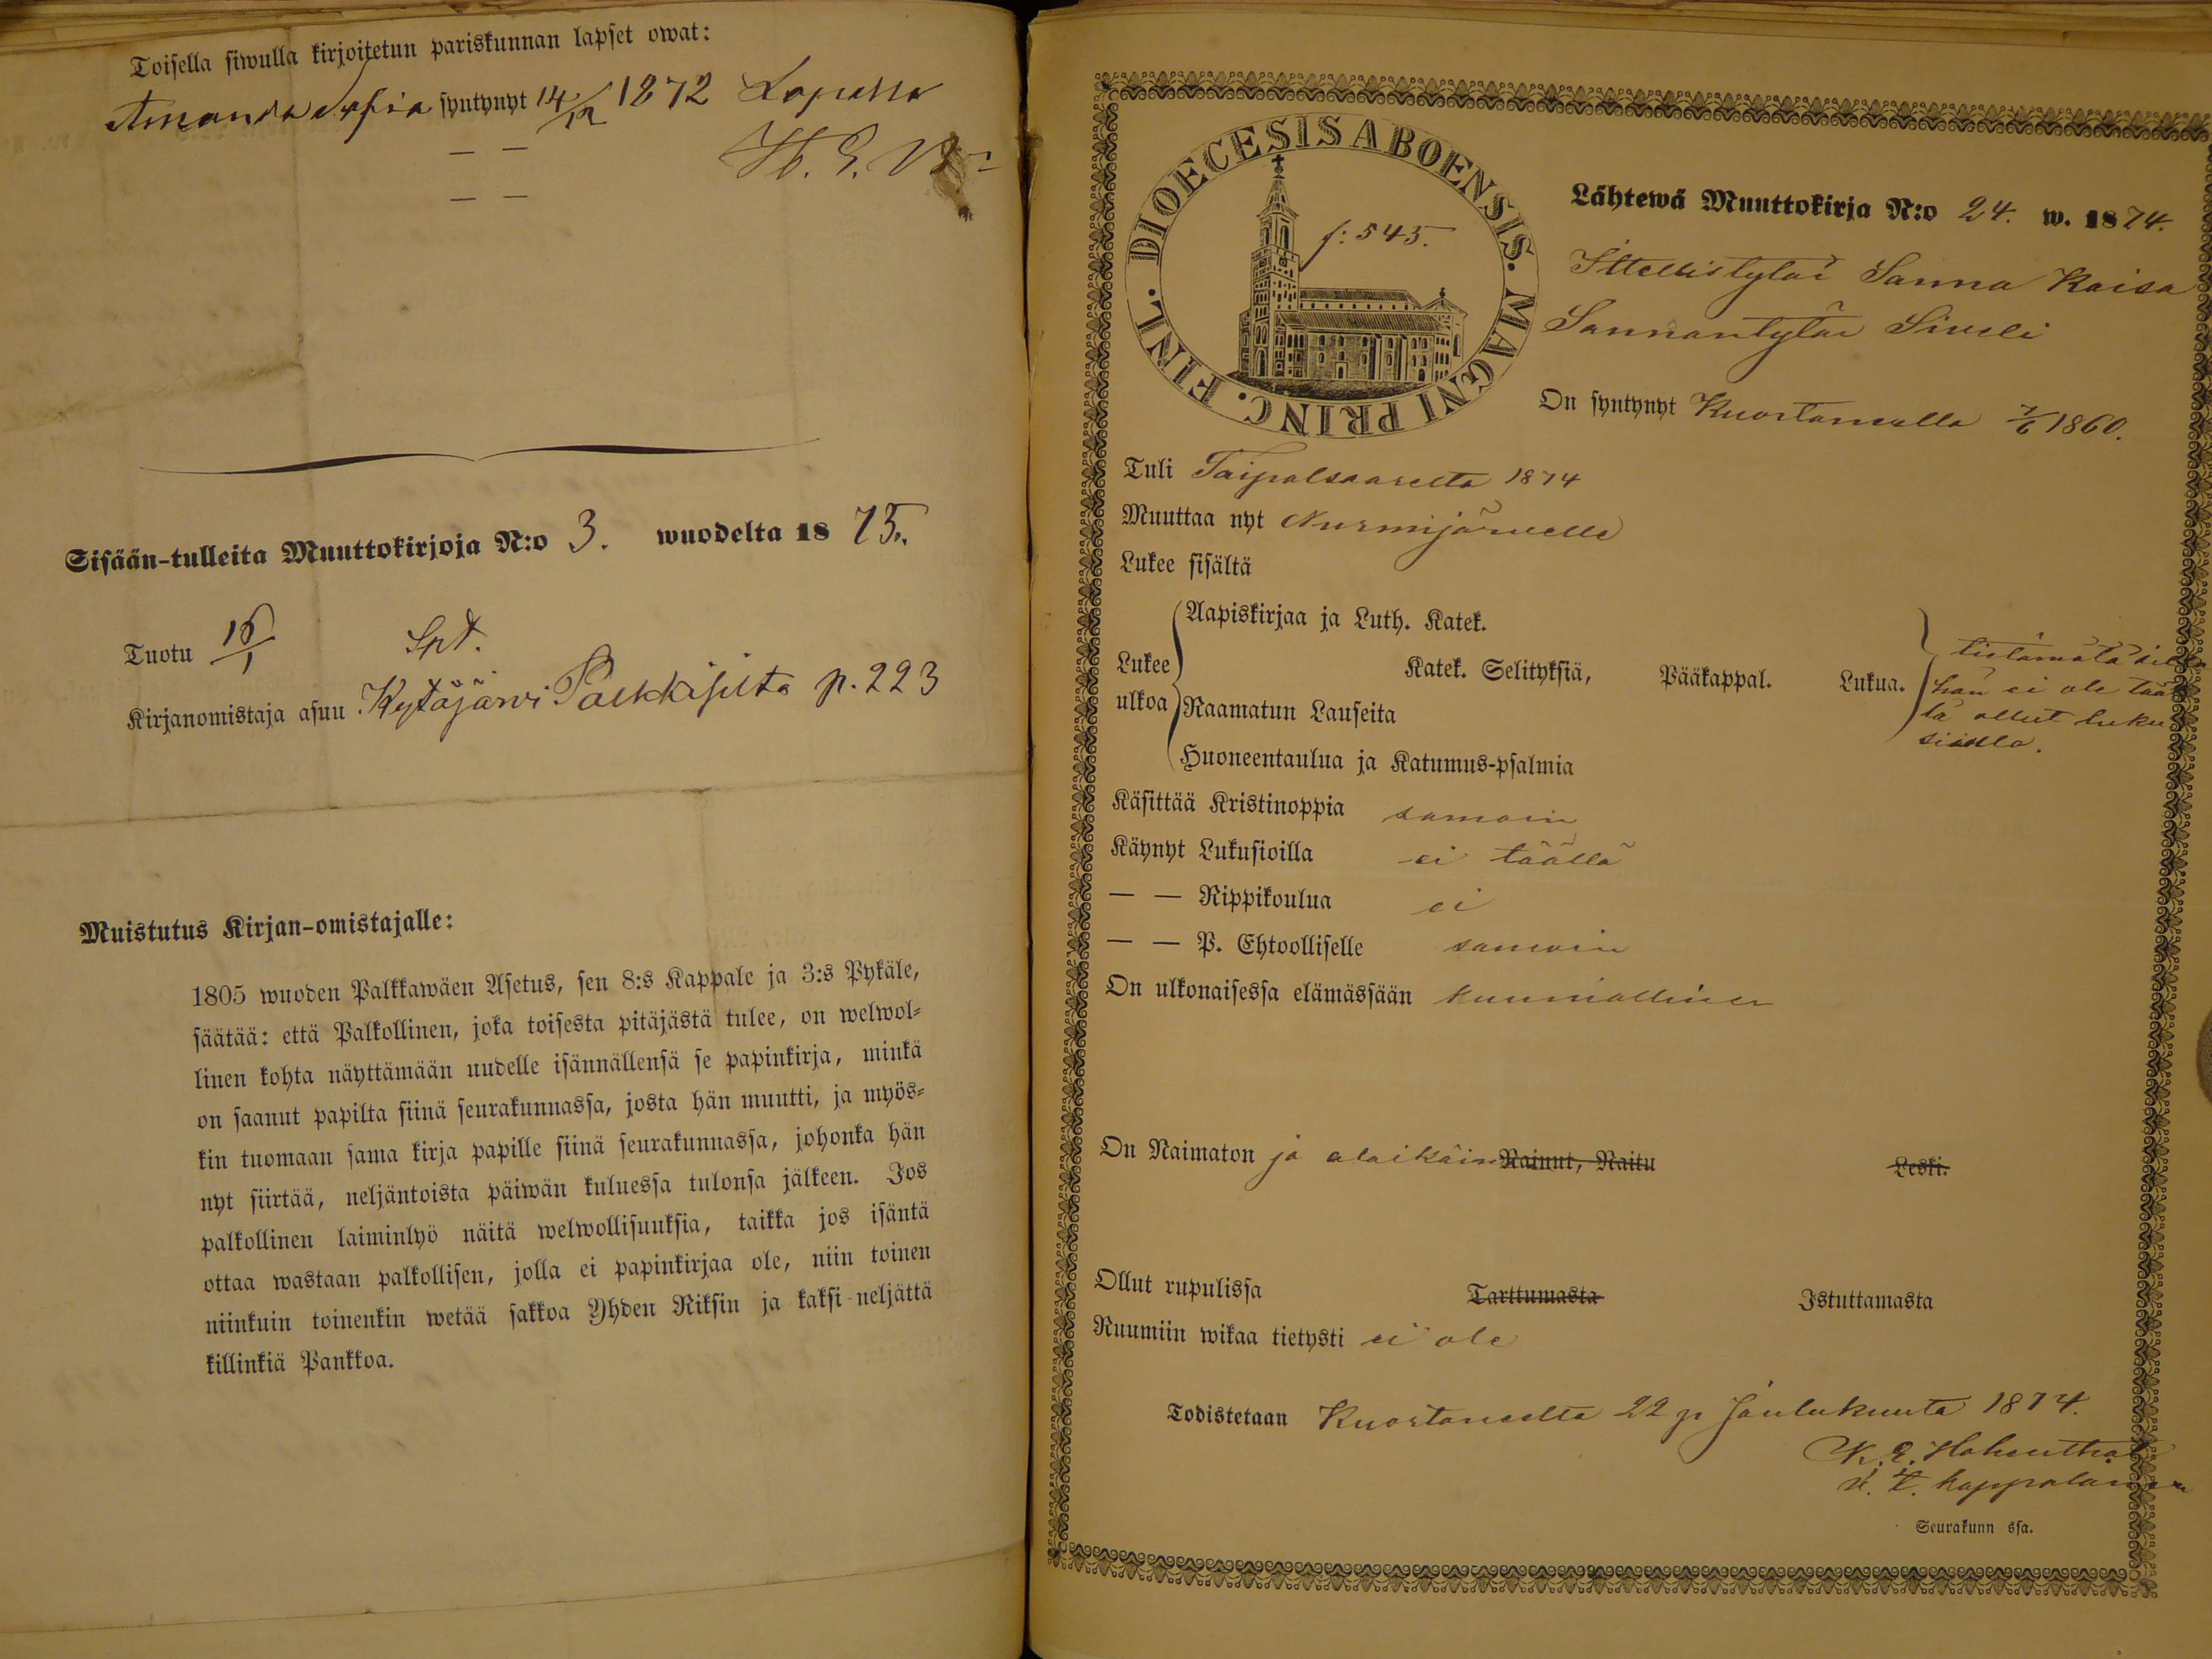 Toisella siwulla kirjoitetun pariskunnan lapset owat:
Amanda Sofia syntynyt 14/12 1872 Lopella
— —
— —
Sisään-tulleita Muuttokirjoja N:o 3. wuodelta 1875.
Tuotu 16/1
Kirjanomistaja asuu Kytäjärvi p. 223
Muistutus Kirjan-omistajalle:
1805 wuoden Palkkawäen Asetus, sen 8:s Kappale ja 3:s Pykäle,
säätää: että Palkollinen, joka toisesta pitäjästä tulee, on welwol-
linen kohta näyttämään uudelle isännällensä se papinkirja, minkä
on saanut papilta siinä seurakunnassa, josta hän muutti, ja myös-
kin tuomaan sama kirja papille siinä seurakunnassa, johonka hän
nyt siirtää, neljäntoista päiwän kuluessa tulonsa jälkeen. Jos
palkollinen laiminlyö näitä welwollisuuksia, taikka jos isäntä
ottaa wastaan palkollisen, jolla ei papinkirjaa ole, niin toinen
niinkuin toinenkin wetää sakkoa Yhden Riksin ja kaksi neljättä
killinkiä Pankkoa.
DIOECESIS ABOENSIS. MAGNI PRINC. FINL.
f: 545.
Lähtewä Muuttokirja N:o 24. w. 1874.
Ittellistytär Sanna Kaisa
Sannantytär Siveli
On syntynyt Kuortaneella 7/6 1860.
Tuli Taipalsaarelta 1874
Muuttaa nyt Nurmijärvelle
Lukee sisältä
Lukee ulkoa
Aapiskirjaa ja Luth. Katek.
Katek. Selityksiä, Pääkappal. Lukua.
Raamatun Lauseita
Huoneentaulua ja Katumus-psalmia
tietämätä sillä
hän ei ole tääl
lä ollut luku
sioilla.
Käsittää Kristinoppia samoin
Käynyt Lukusioilla ei täällä
— — Rippikoulua ei
— — P. Ehtoolliselle samoin
On ulkonaisessa elämässään kunniallinen
On Naimaton ja alaikäin Nainut, Naitu Leski.
Ollut rupulissa Tarttumasta Istuttamasta
Ruumiin wikaa tietysti ei ole
Todistetaan Kuortaneelta 22 p. Joulukuuta 1874.
K. E. Hohenthal
v. t. kappalainen
Seurakunn ssa.